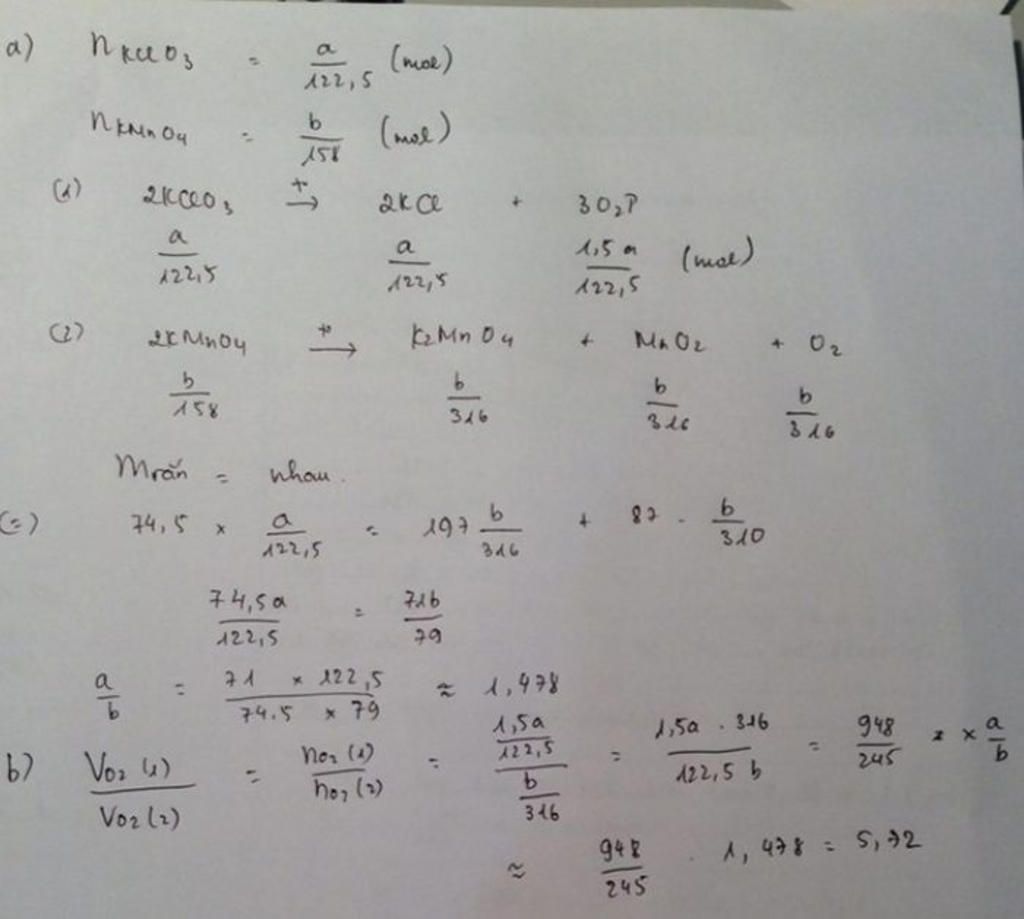 a) nKClO3 = a/122,5 (mol)
nKMnO4 = b/158 (mol)
(1) 2KClO3 t°→ 2KCl + 3O2↑
a/122,5 a/122,5 1,5a/122,5 (mol)
(2) 2KMnO4 t°→ K2MnO4 + MnO2 + O2
b/158 b/316 b/316 b/316
Mrắn = nhau.
(=) 74,5 × a/122,5 = 197 b/316 + 87 . b/310
74,5a/122,5 = 71b/79
a/b = 71 × 122,5/74.5 × 79 ≈ 1,478
b) VO2 (1)/VO2 (2) = nO2 (1)/nO2 (2) = 1,5a/122,5/b/316 = 1,5a . 316/122,5 b = 948/245 × a/b
≈ 948/245 . 1,478 = 5,72